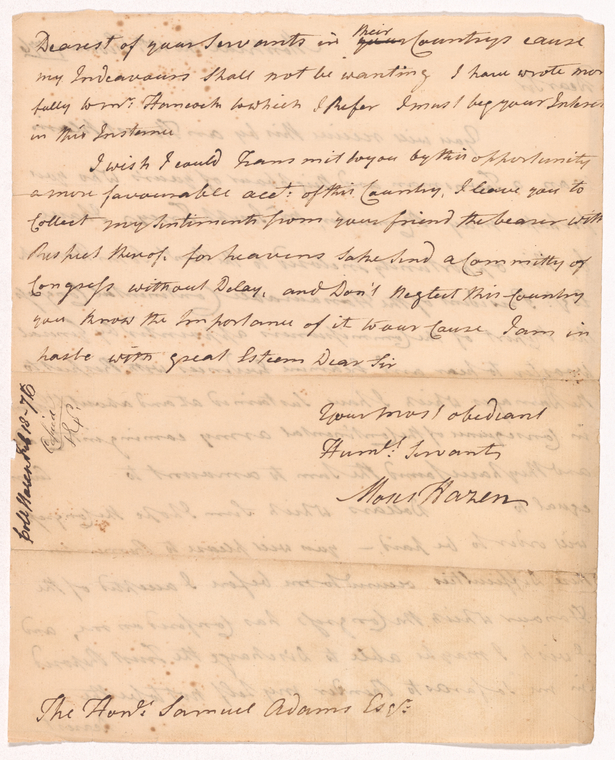 Dearest of your Servants in their your Countrys cause
my Endeavours Shall not be wanting I have wrote mor
fully to mr. Hancock to which I Refer I must beg your Interes
in this Instance
I wish I could Transmit to you by this opportunity
a more favourable acct. of this Country, I leave you to
Collect my Sentiments from your friend the bearer with
Respect therof. for heavens Sake Send a Committy of
Congress without Delay, and Don't Neglect this Country
you know the Importance of it to our Cause I am in
haste with great Esteem Dear Sir
Your most obediant
Humle. Servant
Moses Hazen
Colo Hazen Feb 18-76
The Honle. Samuel Adams Esqr.